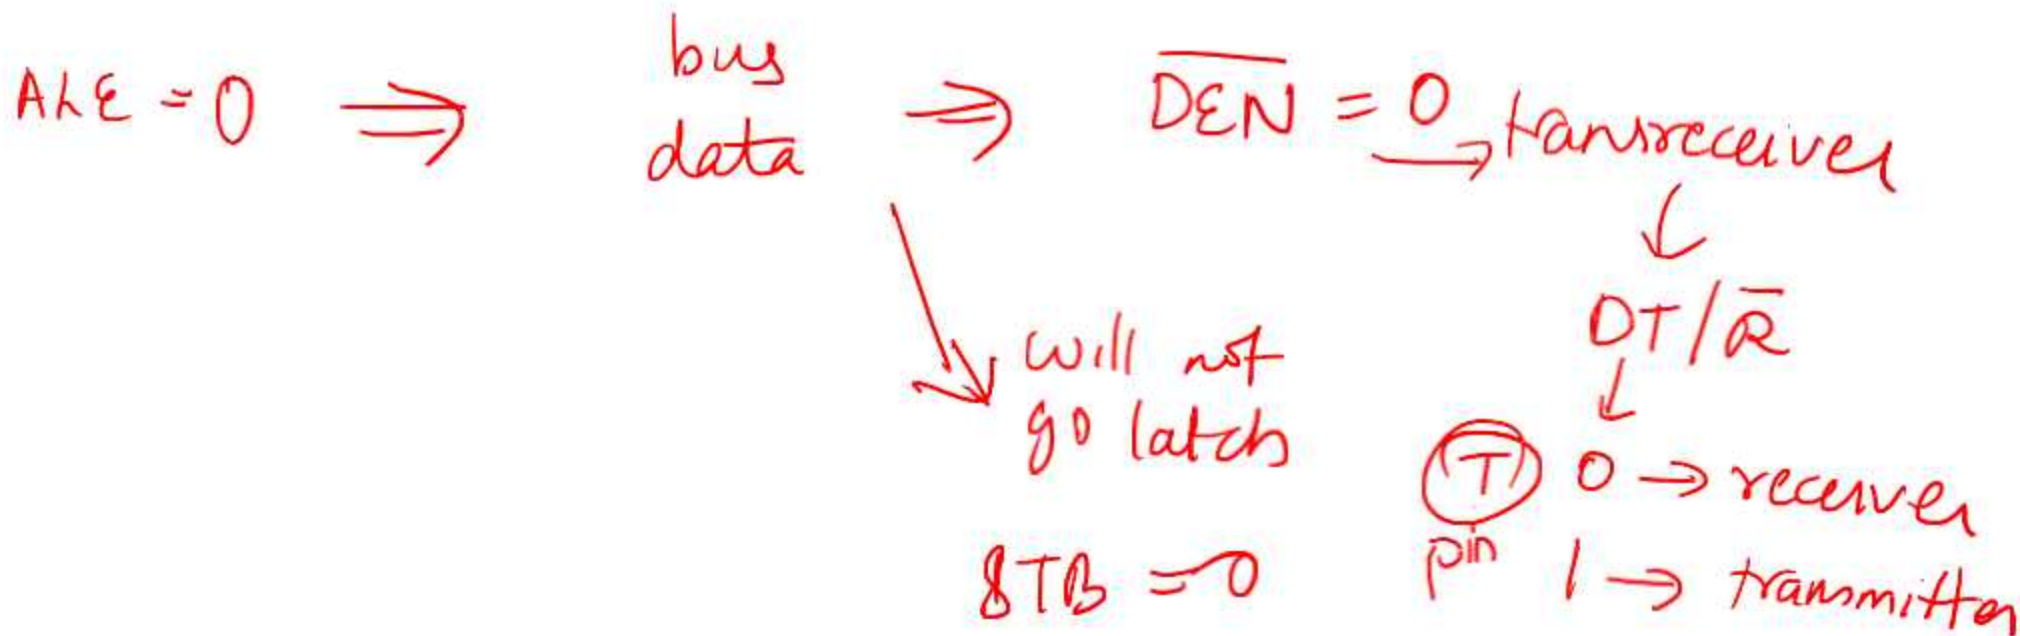 ALE = 0 ⇒ bus data ⇒ D̅E̅N̅ = 0 → transreceiver
↓
DT/R̅
↓
will not
go latch
T 0 → receiver
pin 1 → transmitter
STB = 0